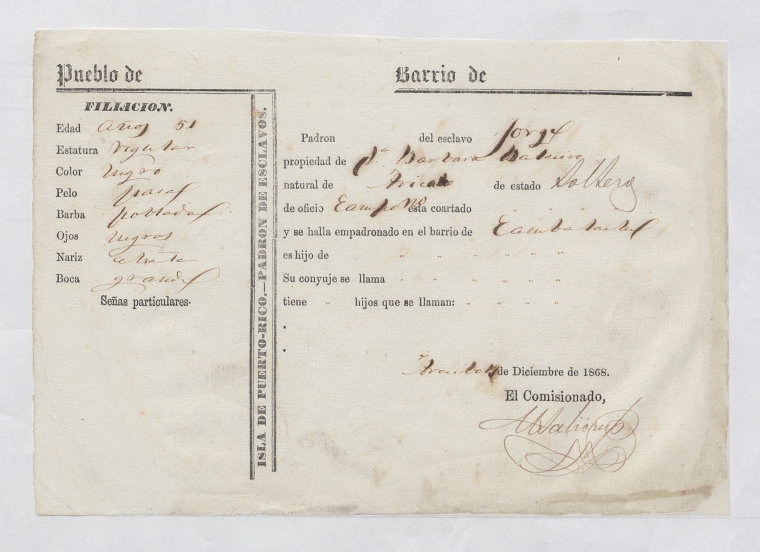 Pueblo de
Barrio de
FILIACION.
Edad años 51
Estatura regular
Color negro
Pelo pasas
Barba poblada
Ojos negros
Nariz chata
Boca grande
Señas particulares.
ISLA DE PUERTO-RICO.—PADRON DE ESCLAVOS.
Padron del esclavo Jorge
propiedad de Da. Barbara
natural de de estado Soltero
de oficio Campo No esta coartado
y se halla empadronado en el barrio de
es hijo de " " " " " "
Su conyuje se llama " " " " "
tiene " hijos que se llaman: " " " "
de Diciembre de 1868.
El Comisionado,